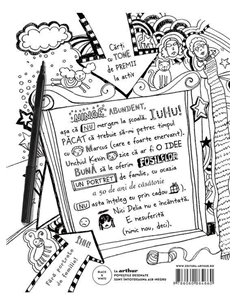 Cărți
cu TONE
de PREMII
la activ
NINGE ABUNDENT,
așa că NU mergem la școală. IuHu!
PĂCAT că trebuie să-mi petrec timpul
cu Marcus (care e foarte enervant).
Unchiul Kevin zice că ar fi O IDEE
BUNĂ să le oferim FOSILELOR
UN PORTRET de familie, cu ocazia
a 50 de ani de căsătorie
(NU asta înțeleg eu prin cadou).
Nici Delia nu e încântată.
E nesuferită
(nimic nou, deci).
Fără portret
de familie!
arthur
POVEȘTILE DESENATE
SUNT ÎNTOTDEAUNA ALB-NEGRU
WWW.EDITURA-ARTHUR.RO